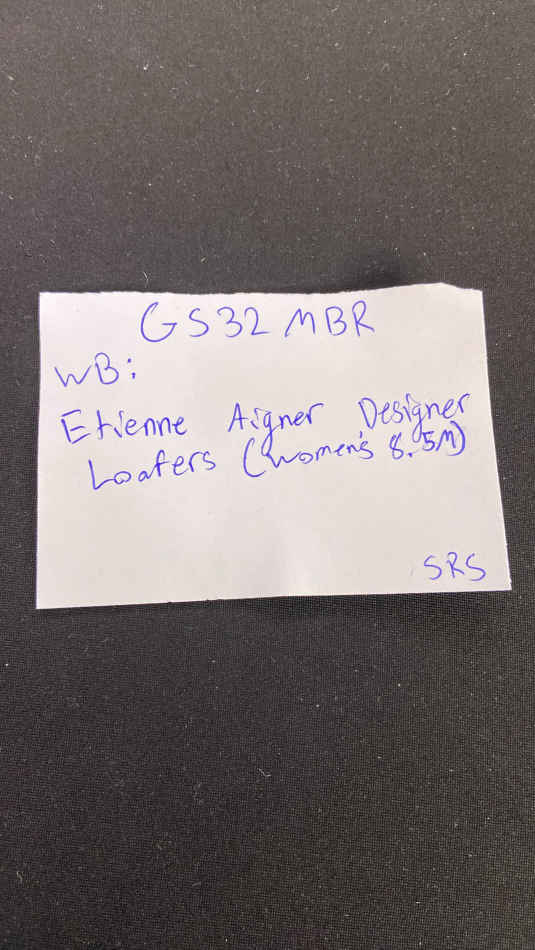 GS32 MBR
WB:
Etienne Aigner Designer
Loafers (Women's 8.5M)
SRS